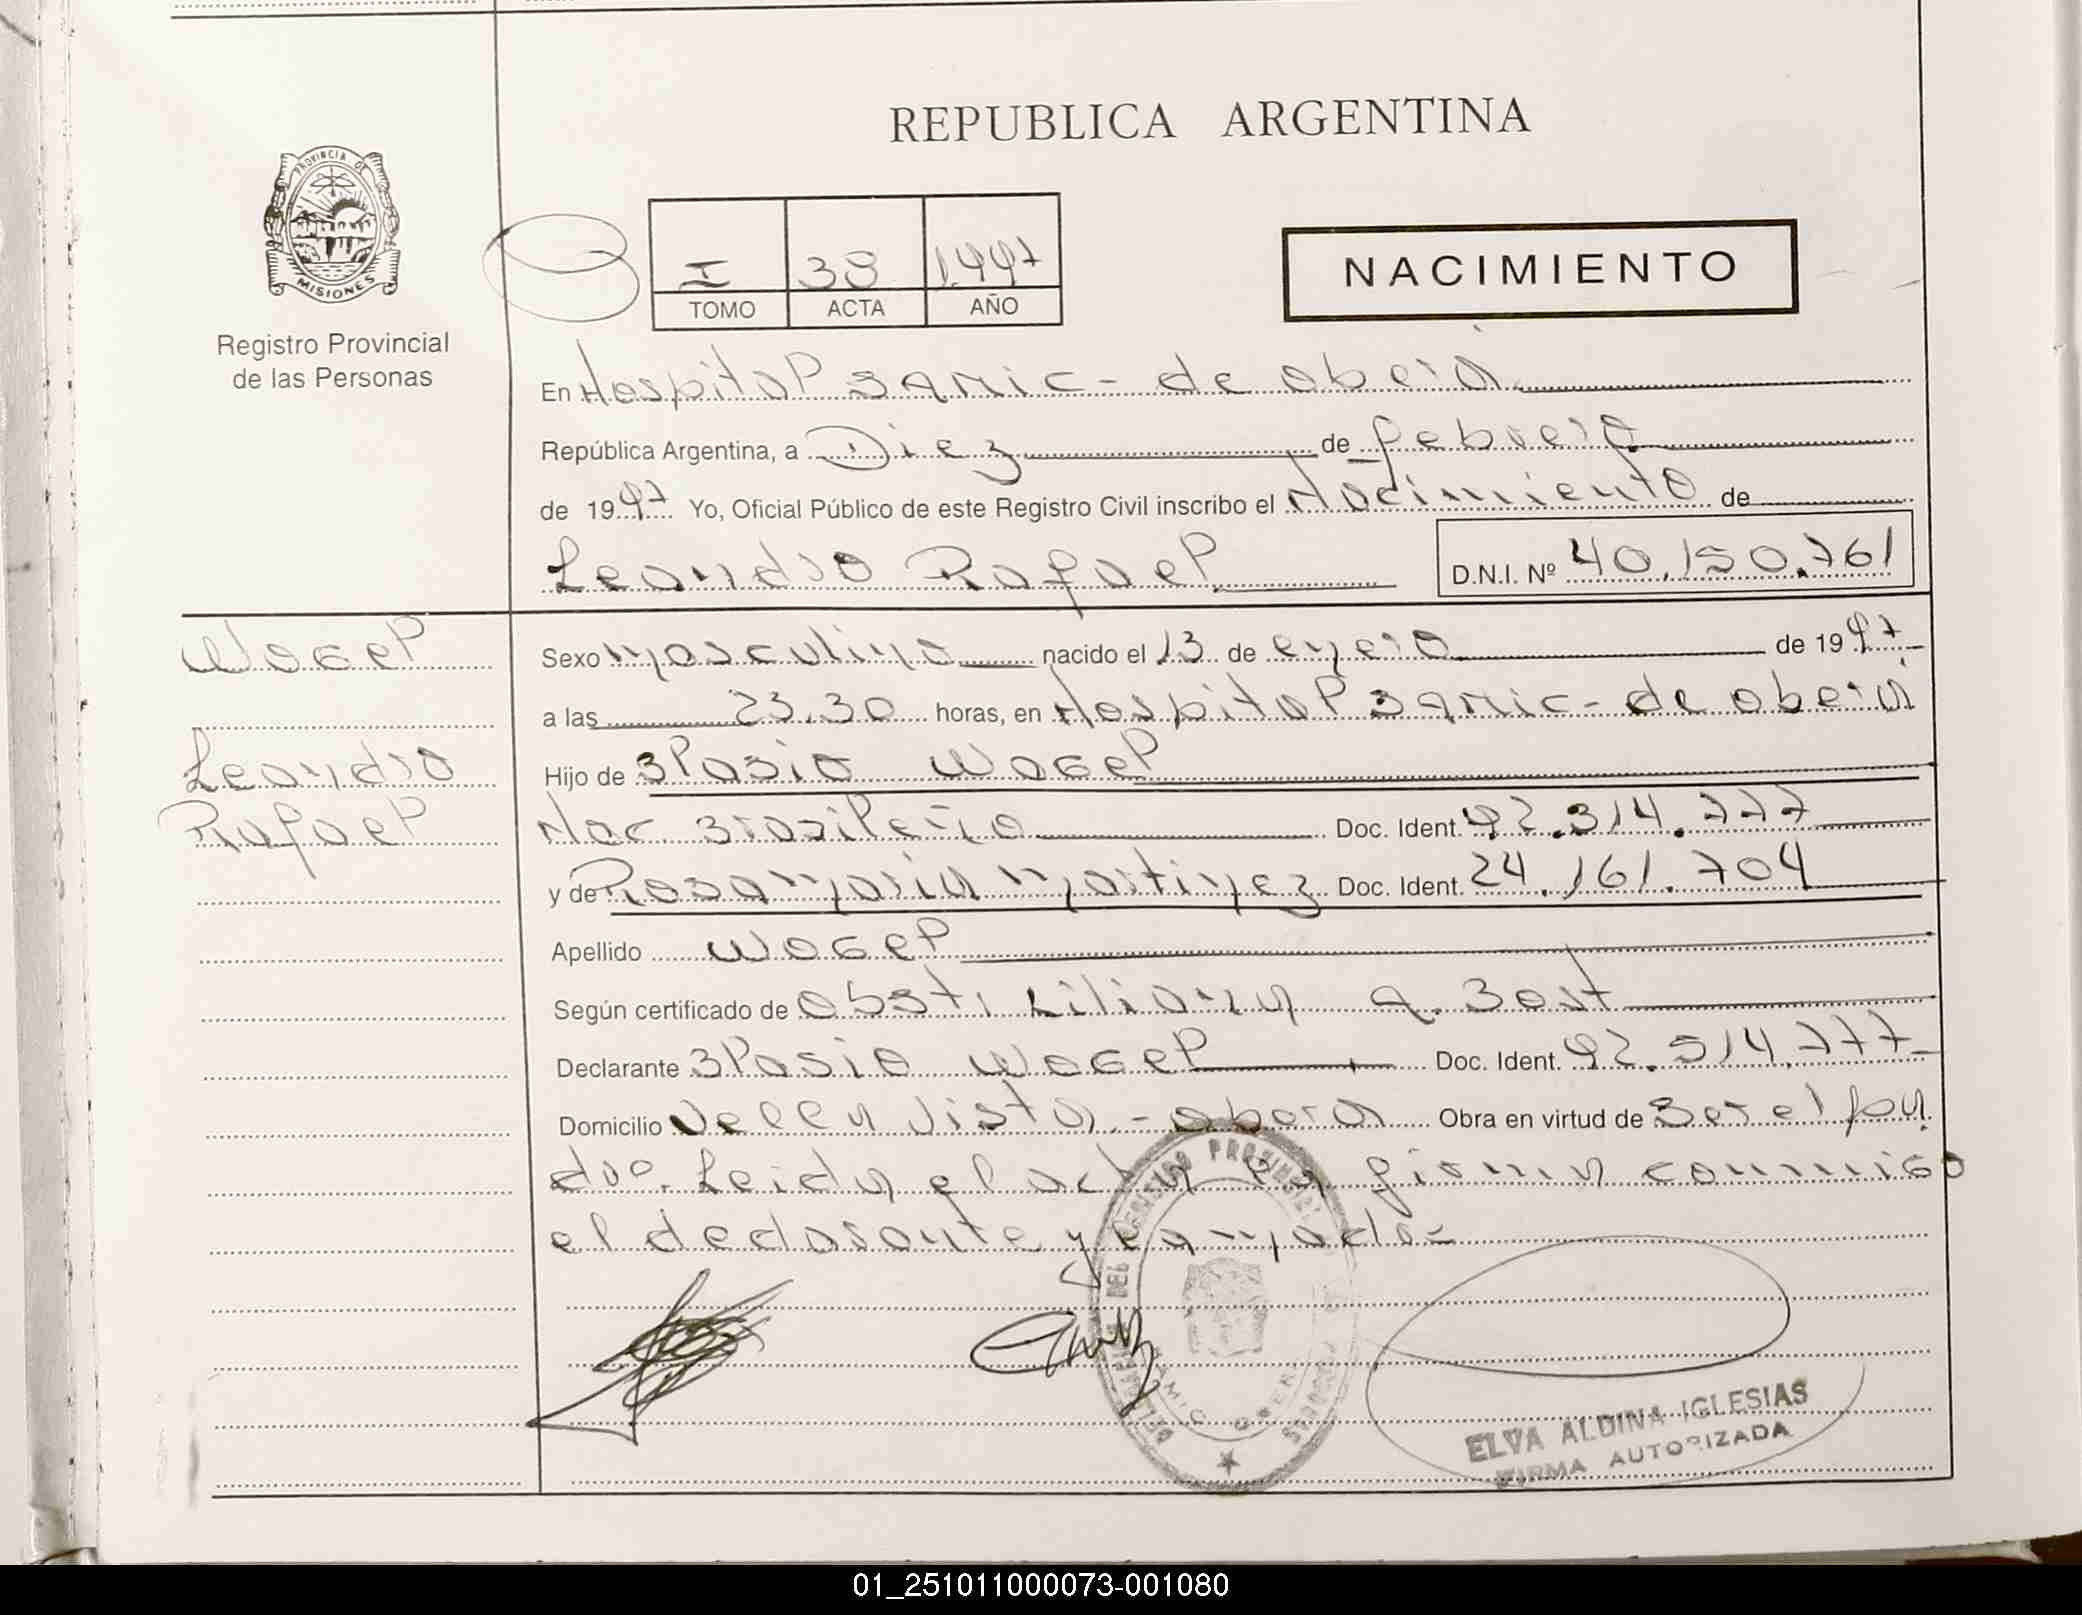 REPUBLICA ARGENTINA
PROVINCIA DE
MISIONES
Registro Provincial
de las Personas
I 38 1.997
TOMO ACTA AÑO
NACIMIENTO
En Hospital Samic - de oberá
República Argentina, a Diez de febrero
de 1997 Yo, Oficial Público de este Registro Civil inscribo el Nacimiento de
Leandro Rafael D.N.I. Nº 40.150.761
Wogel
Leandro
Rafael
Sexo masculino nacido el 13 de enero de 1997
a las 23.30 horas, en Hospital Samic - de oberá
Hijo de Blasio Wogel
Nac. Brasileño Doc. Ident. 92.314.777
y de Rosa maria martinez Doc. Ident. 24.161.704
Apellido Wogel
Según certificado de obst. Liliana A. Bost
Declarante Blasio Wogel Doc. Ident. 92.314.777
Domicilio Vella Vista - obera Obra en virtud de Ser el pa
dre. Leida el acta la firma conmigo
el declarante y
REGISTRO PROVINCIAL
SAMIC OBERA
ELVA ALDINA IGLESIAS
FIRMA AUTORIZADA
01_251011000073-001080